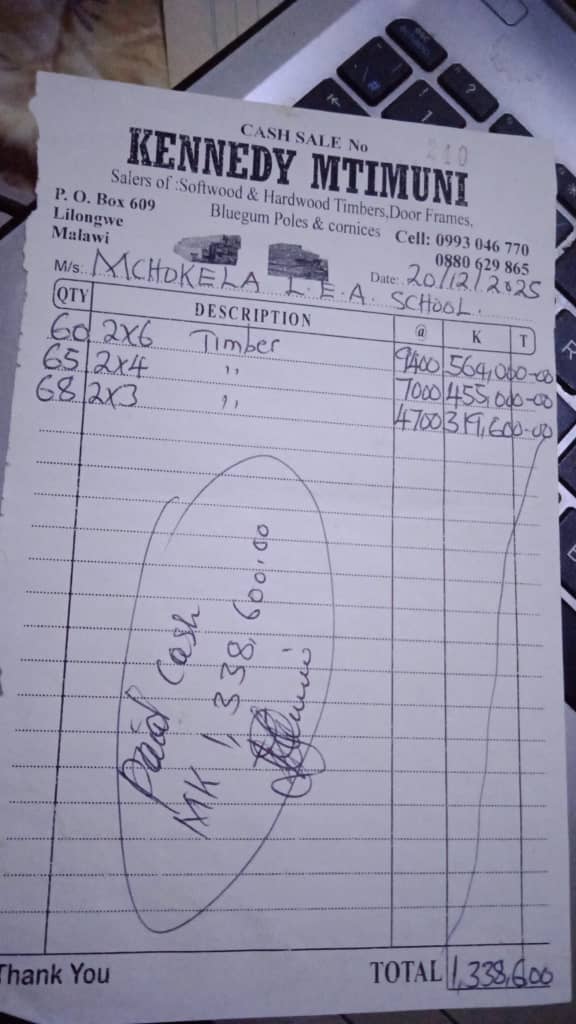 CASH SALE No 240
KENNEDY MTIMUNI
Salers of :Softwood & Hardwood Timbers,Door Frames,
Bluegum Poles & cornices
P. O. Box 609
Lilongwe
Malawi
Cell: 0993 046 770
0880 629 865
M/s: MCHOKELA L.E.A. SCHOOL. Date: 20/12/2025
QTY DESCRIPTION @ K T
60 2x6 Timber 9400 564,000-00
65 2x4 ,, 7000 455,000-00
68 2x3 ,, 4700 319,600-00
Paid Cash
MK 1,338,600.00
Thank You TOTAL 1,338,600